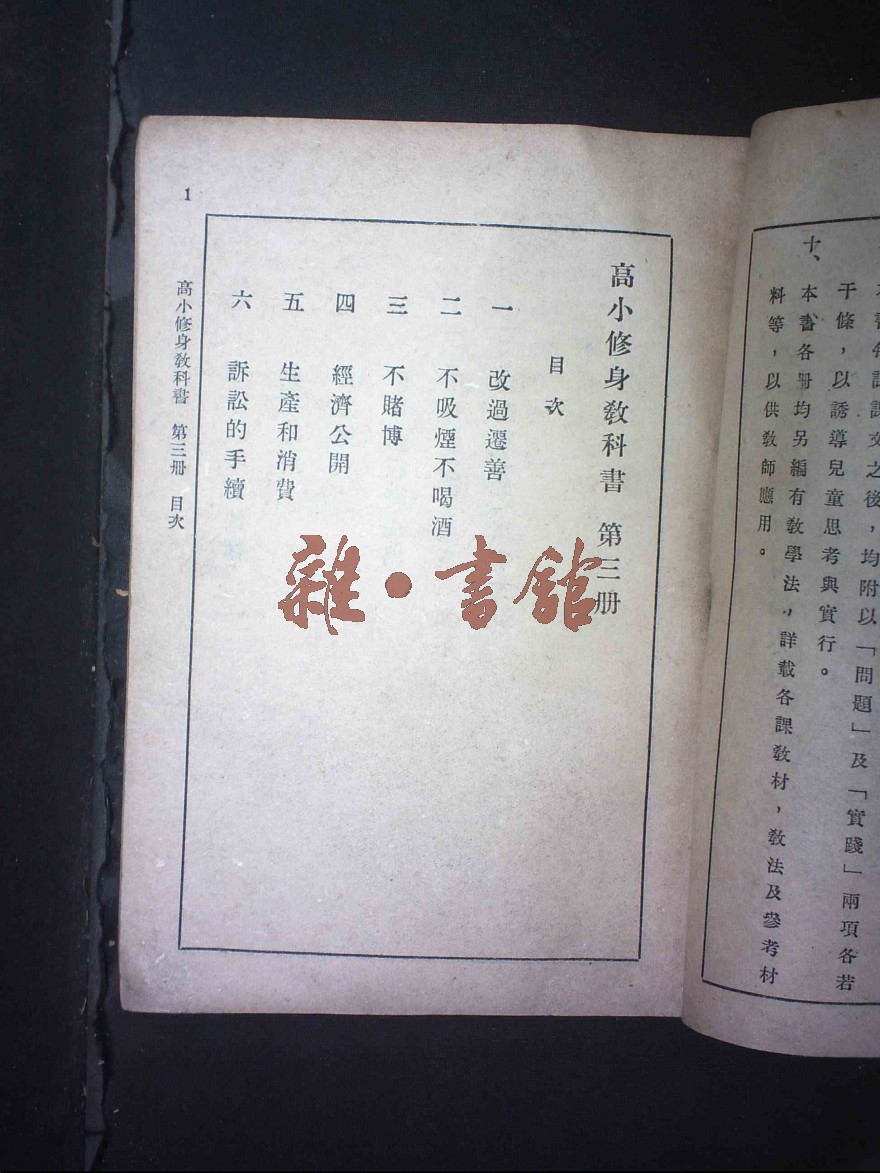 本書每課課文之後，均附以「問題」及「實踐」兩項各若
干條，以誘導兒童思考與實行。
十、本書各冊均另編有教學法，詳載各課教材，教法及參考材
料等，以供教師應用。
高小修身教科書　第三冊
目次
一　改過遷善
二　不吸煙不喝酒
三　不賭博
四　經濟公開
五　生產和消費
六　訴訟的手續
高小修身教科書　第三冊　目次
1
雜・書館